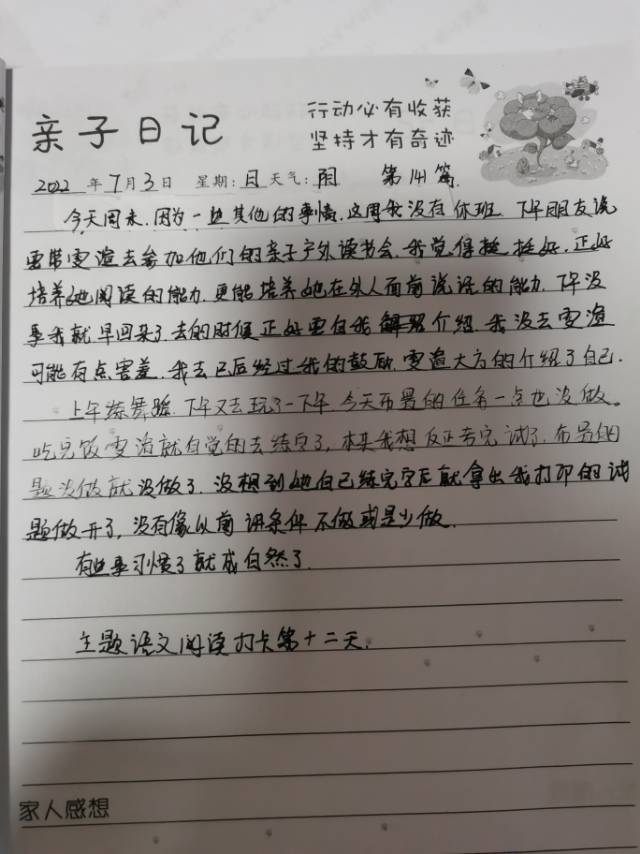 亲子日记
行动必有收获
坚持才有奇迹
2022年7月3日 星期:日 天气:雨 第141篇
今天周末,因为一些其他的事情,这周我没有休班.下午朋友说
要带雯渲去参加他们的亲子户外读书会.我觉得挺挺好,正好
培养她阅读的能力.更能培养她在外人面前说话的能力.下午没
事我就早回来了.去的时候正好要自我介绍.我没去雯渲
可能有点害羞.我去已后经过我的鼓励,雯渲大方的介绍了自己.
上午练舞蹈.下午又去玩了一下午.今天布置的任务一点也没做。
吃完饭雯渲就自觉的去练字了,本来我想反正考完试了.布置的
题没做就没做了.没想到她自己练完字后就拿出我打印的试
题做开了,没有像以前讲条件不做或是少做.
有些事习惯了就成自然了.
主题语文阅读打卡第十二天.
家人感想